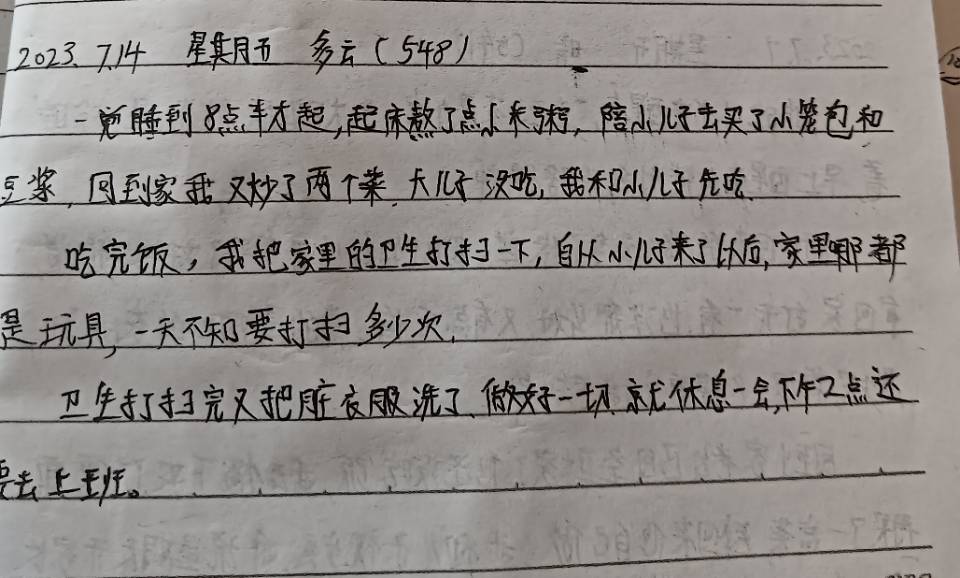 2023.7.14 星期五 多云(548)
一觉睡到8点半才起,起床熬了点小米粥,陪小儿子去买了小笼包和
豆浆,回到家我又炒了两个菜.大儿子没吃,我和小儿子先吃.
吃完饭,我把家里的卫生打扫一下,自从小儿子来了以后,家里哪都
是玩具,一天不知要打扫多少次.
卫生打扫完又把脏衣服洗了.做好一切.就休息一会,下午2点还
要去上班。